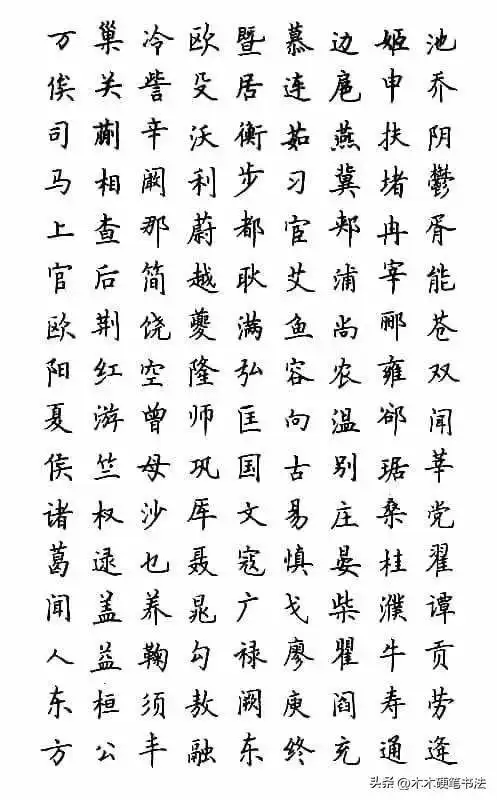 池乔阴鬱胥能苍双闻莘党翟谭贡劳逄
姬申扶堵冉宰郦雍郤琚桑桂濮牛寿通
边扈燕冀郏浦尚农温别庄晏柴瞿阎充
慕连茹习宦艾鱼容向古易慎戈廖庾终
暨居衡步都耿满弘匡国文寇广禄阙东
欧殳沃利蔚越夔隆师巩厍聂晁勾敖融
冷訾辛阚那简饶空曾母沙乜养鞠须丰
巢关蒯相查后荆红游竺权逯盖益桓公
万俟司马上官欧阳夏侯诸葛闻人东方
头条 @木木硬笔书法